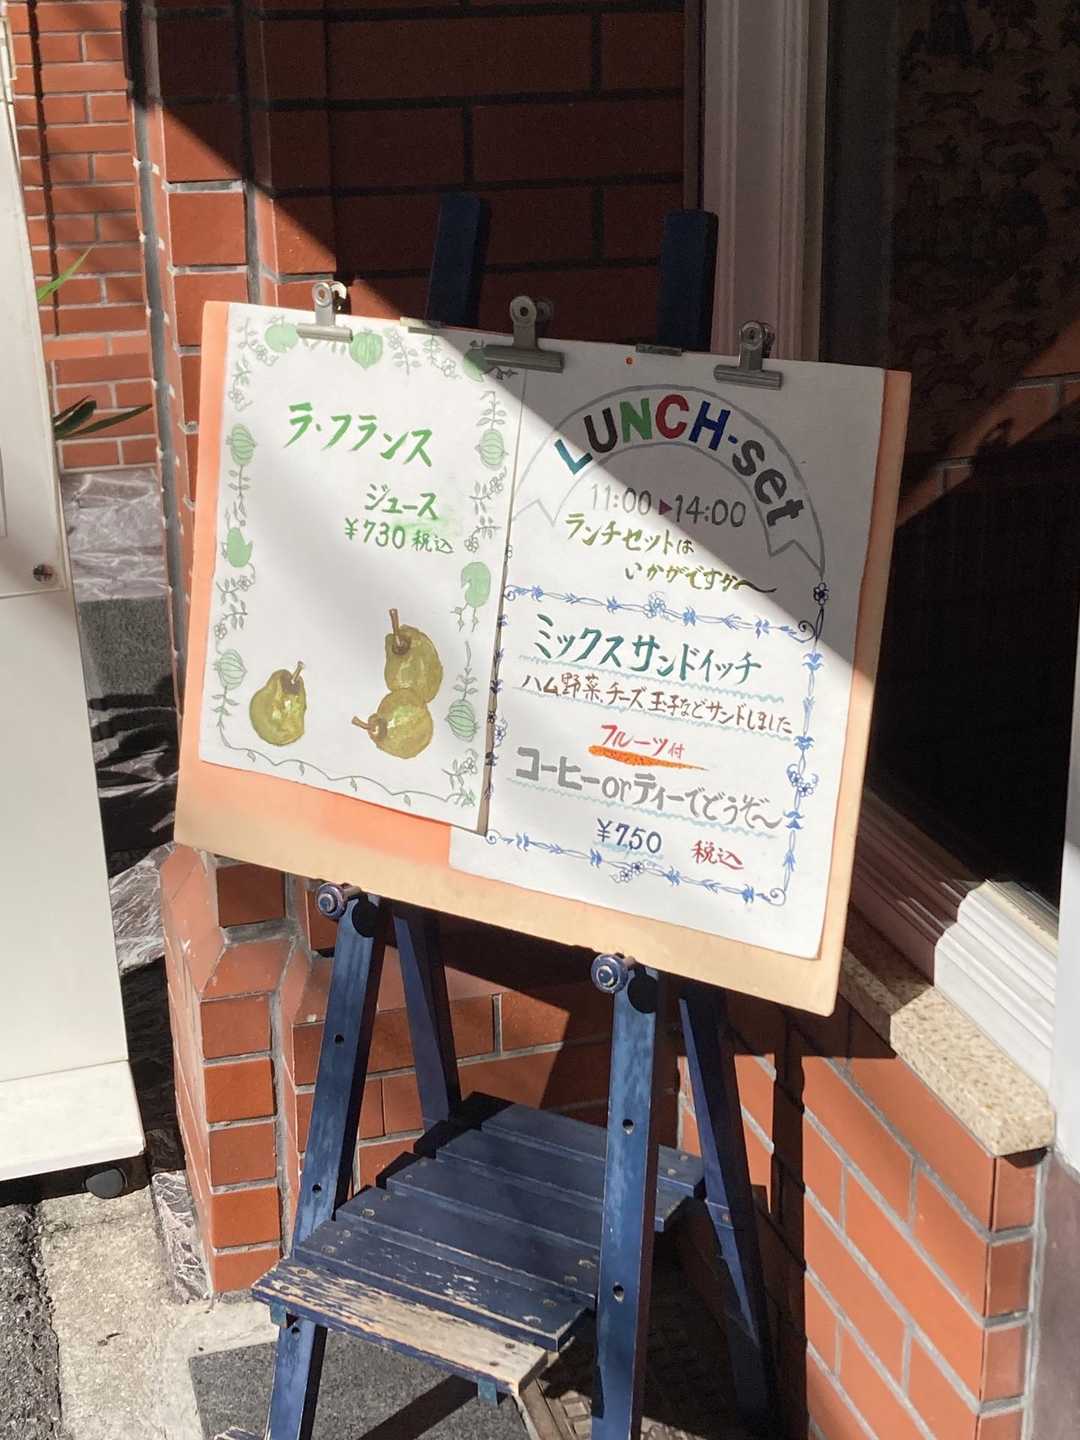 ラ・フランス
ジュース
¥730 税込
LUNCH-set
11:00▶14:00
ランチセットは
いかがですか〜
ミックスサンドイッチ
ハム野菜、チーズ玉子などサンドしました
フルーツ付
コーヒーorティーでどうぞ〜
¥750 税込